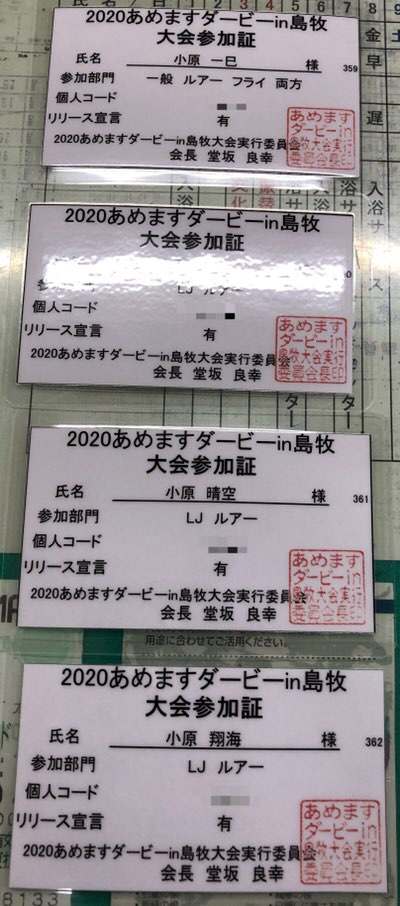 2020あめますダービーin島牧
大会参加証
氏名 小原 一巳 様 359
参加部門 一般 ルアー フライ 両方
個人コード
リリース宣言 有
2020あめますダービーin島牧大会実行委員会
会長 堂坂 良幸
あめます
ダービーin
島牧大会実行
委員会長印
2020あめますダービーin島牧
大会参加証
LJ ルアー
個人コード
リリース宣言 有
2020あめますダービーin島牧大会実行委員会
会長 堂坂 良幸
あめます
ダービーin
島牧大会実行
委員会長印
2020あめますダービーin島牧
大会参加証
氏名 小原 晴空 様 361
参加部門 LJ ルアー
個人コード
リリース宣言 有
2020あめますダービーin島牧大会実行委員会
会長 堂坂 良幸
あめます
ダービーin
島牧大会実行
委員会長印
用途に合わせてご活用ください。
2020あめますダービーin島牧
大会参加証
氏名 小原 翔海 様 362
参加部門 LJ ルアー
個人コード
リリース宣言 有
2020あめますダービーin島牧大会実行委員会
会長 堂坂 良幸
あめます
ダービーin
島牧大会実行
委員会長印
8133